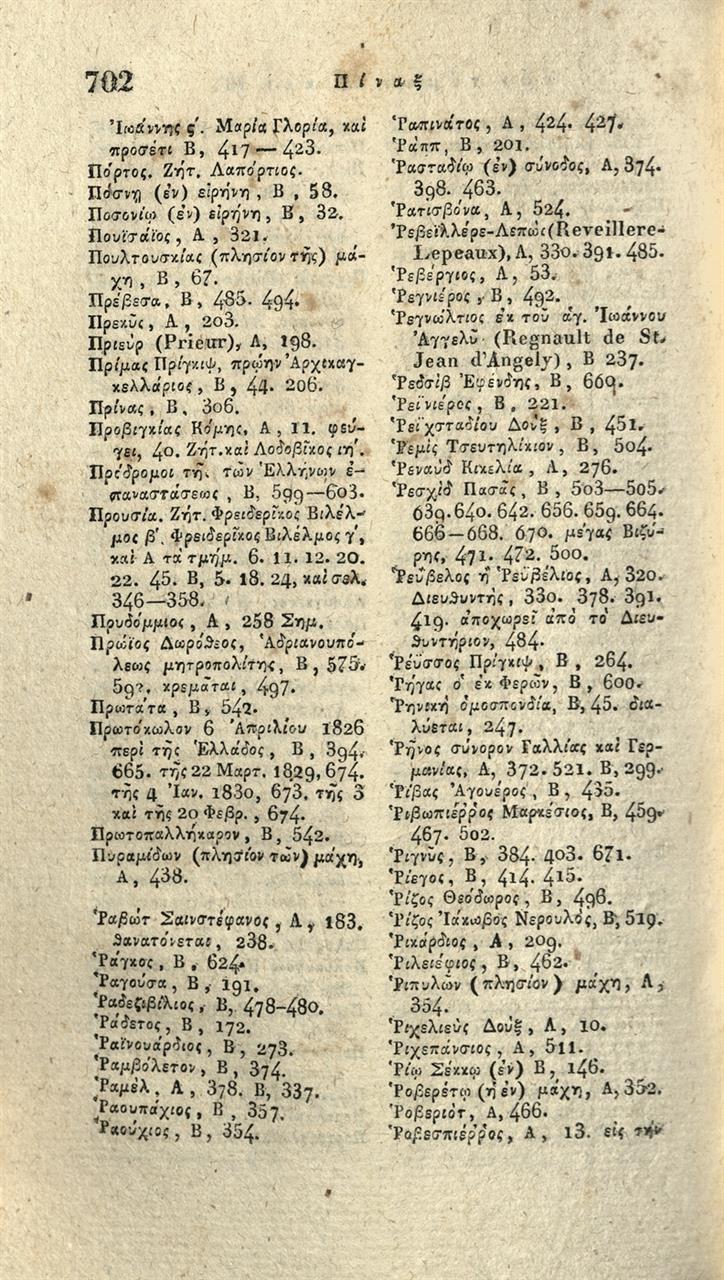 702
Πίναξ
Ἰωάννης ϛ'. Μαρία Γλορία, καὶ
προσέτι Β, 417 — 423.
Πόρτος. Ζήτ. Λαπόρτιος.
Πόσνῃ (ἐν) εἰρήνη, Β, 58.
Ποσονίῳ (ἐν) εἰρήνη, Β, 32.
Πουϊσάϊος, Α, 321.
Πουλτουσκίας (πλησίον τῆς) μά-
χη, Β, 67.
Πρέβεσα, Β, 485. 494.
Πρεκῦς, Α, 203.
Πριεὺρ (Prieur), Α, 198.
Πρίμας Πρίγκιψ, πρώην Ἀρχικαγ-
κελλάριος, Β, 44. 206.
Πρίνας, Β, 306.
Προβιγκίας Κόμης, Α, 11. φεύ-
γει, 40. Ζήτ. καὶ Λοδοβῖκος ιη'.
Πρόδρομοι τῆς τῶν Ἑλλήνων ἐ-
παναστάσεως, Β, 599—603.
Προυσία. Ζήτ. Φρειδερῖκος Βιλέλ-
μος β'. Φρειδερῖκος Βιλέλμος γ',
καὶ Α τὰ τμήμ. 6. 11. 12. 20.
22. 45. Β, 5. 18. 24, καὶ σελ.
346—358.
Πρυδόμμιος, Α, 258 Σημ.
Πρώϊος Δωρόθεος, Ἀδριανουπό-
λεως μητροπολίτης, Β, 575.
59?. κρεμᾶται, 497.
Πρωτάτα, Β, 542.
Πρωτόκωλον 6 Ἀπριλίου 1826
περὶ τῆς Ἑλλάδος, Β, 394.
665. τῆς 22 Μαρτ. 1829, 674.
τῆς 4 Ἰαν. 1830, 673. τῆς 3
καὶ τῆς 20 Φεβρ., 674.
Πρωτοπαλλήκαρον, Β, 542.
Πυραμίδων (πλησίον τῶν) μάχη,
Α, 438.
Ῥαβὼτ Σαινστέφανος, Α, 183.
θανατόνεται, 238.
Ῥάγκος, Β, 624.
Ῥαγούσα, Β, 191.
Ῥαδεζιβίλιος, Β, 478–480.
Ῥάδετος, Β, 172.
Ῥαϊνουάρδιος, Β, 273.
Ῥαμβόλετον, Β, 374.
Ῥαμὲλ, Α, 378. Β, 337.
Ῥαουπάχιος, Β, 357.
Ῥαούχιος, Β, 354.
Ῥαπινάτος, Α, 424. 427.
Ῥάππ, Β, 201.
Ῥασταδίῳ (ἐν) σύνοδος, Α, 374.
398. 463.
Ῥατισβόνα, Α, 524.
Ῥεβεϊλλέρε-Λεπὼς (Reveillere-
Lepeaux), Α, 330. 391. 485.
Ῥεβέργιος, Α, 53.
Ῥεγνιέρος, Β, 492.
Ῥεγνώλτιος ἐκ τοῦ ἁγ. Ἰωάννου
Ἀγγελῦ (Regnault de St.
Jean d'Angely), Β 237.
Ῥεδσὶβ Ἐφένδης, Β, 669.
Ῥεϊνιέρος, Β, 221.
Ῥεϊχσταδίου Δοὺξ, Β, 451.
Ῥεμὶς Τσευτηλίκιον, Β, 504.
Ῥεναὺδ Κικελία, Α, 276.
Ῥεσχὶδ Πασᾶς, Β, 503—505.
639. 640. 642. 656. 659. 664.
666—668. 670. μέγας Βιζύ-
ρης, 471. 472. 500.
Ῥεύβελος ἢ Ῥευβέλιος, Α, 320.
Διευθυντὴς, 330. 378. 391.
419. ἀποχωρεῖ ἀπὸ τὸ Διευ-
θυντήριον, 484.
Ῥέϋσσος Πρίγκιψ, Β, 264.
Ῥήγας ὁ ἐκ Φερῶν, Β, 600.
Ῥηνικὴ ὁμοσπονδία, Β, 45. δια-
λύεται, 247.
Ῥῆνος σύνορον Γαλλίας καὶ Γερ-
μανίας, Α, 372. 521. Β, 299.
Ῥίβας Ἀγουέρος, Β, 435.
Ῥιβωπιέῤῥος Μαρκέσιος, Β, 459.
467. 502.
Ῥιγνῦς, Β, 384. 403. 671.
Ῥίεγος, Β, 414. 415.
Ῥίζος Θεόδωρος, Β, 496.
Ῥίζος Ἰάκωβος Νερουλὸς, Β, 519.
Ῥικάρδιος, Α, 209.
Ῥιλειέφιος, Β, 462.
Ῥιπυλῶν (πλησίον) μάχη, Α,
354.
Ῥιχελιεὺς Δοὺξ, Α, 10.
Ῥιχεπάνσιος, Α, 511.
Ῥίῳ Σέκκῳ (ἐν) Β, 146.
Ῥοβερέτῳ (ἡ ἐν) μάχη, Α, 352.
Ῥοβεριὸτ, Α, 466.
Ῥοβεσπιέῤῥος, Α, 13. εἰς τὴν